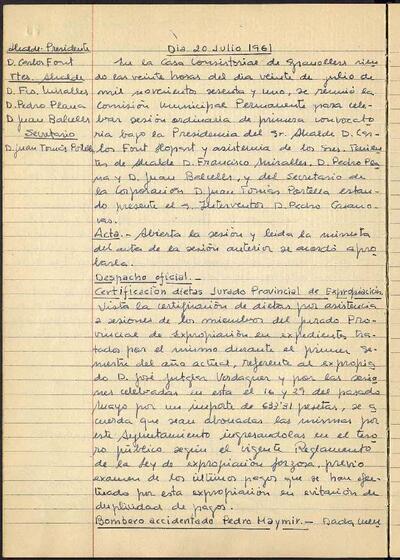 Alcalde-Presidente
D. Carlos Font
Ttes. Alcalde
D. Fco. Miralles
D. Pedro Plana
D. Juan Balcells
Secretario
D. Juan Tomás Portella
Dia 20 Julio 1961
En la Casa Consistorial de Granollers sien
do las veinte horas del dia veinte de julio de
mil novecientos sesenta y uno, se reunió la
Comisión Municipal Permanente para cele-
brar sesión ordinaria de primera convocato
ria bajo la Presidencia del Sr. Alcalde D. Car-
los Font Llopart y asistencia de los Sres. Tenien-
tes de Alcalde D. Francisco Miralles, D. Pedro Pla
na y D. Juan Balcells, y del Secretario de
la Corporación D. Juan Tomás Portella estan-
do presente el Sr. Interventor D. Pedro Casano-
vas.
Acta.- Abierta la sesión y leida la minuta
del acta de la sesión anterior se acordó apro
barla.
Despacho oficial.-
Certificación dietas Jurado Provincial de Expropiación
Vista la certificación de dietas por asistencia
a sesiones de los miembros del Jurado Pro-
vincial de Expropiación en expedientes tra-
tados por el mismo durante el primer se-
mestre del año actual, referente al expropia
do D. José Jutglar Verdaguer y por las sesio
nes celebradas en esta el 16 y 29 del pasado
Mayo por un importe de 633'31 pesetas, se a
cuerda que sean abonadas las mismas por
este Ayuntamiento ingresandolas en el teso
ro público según el vigente Reglamento
de la Ley de expropiación forzosa, previo
examen de los últimos pagos que se han efec
tuado por esta expropiación en evitación de
duplicidad de pagos.
Bombero accidentado Pedro Maymir.- Dada cuen